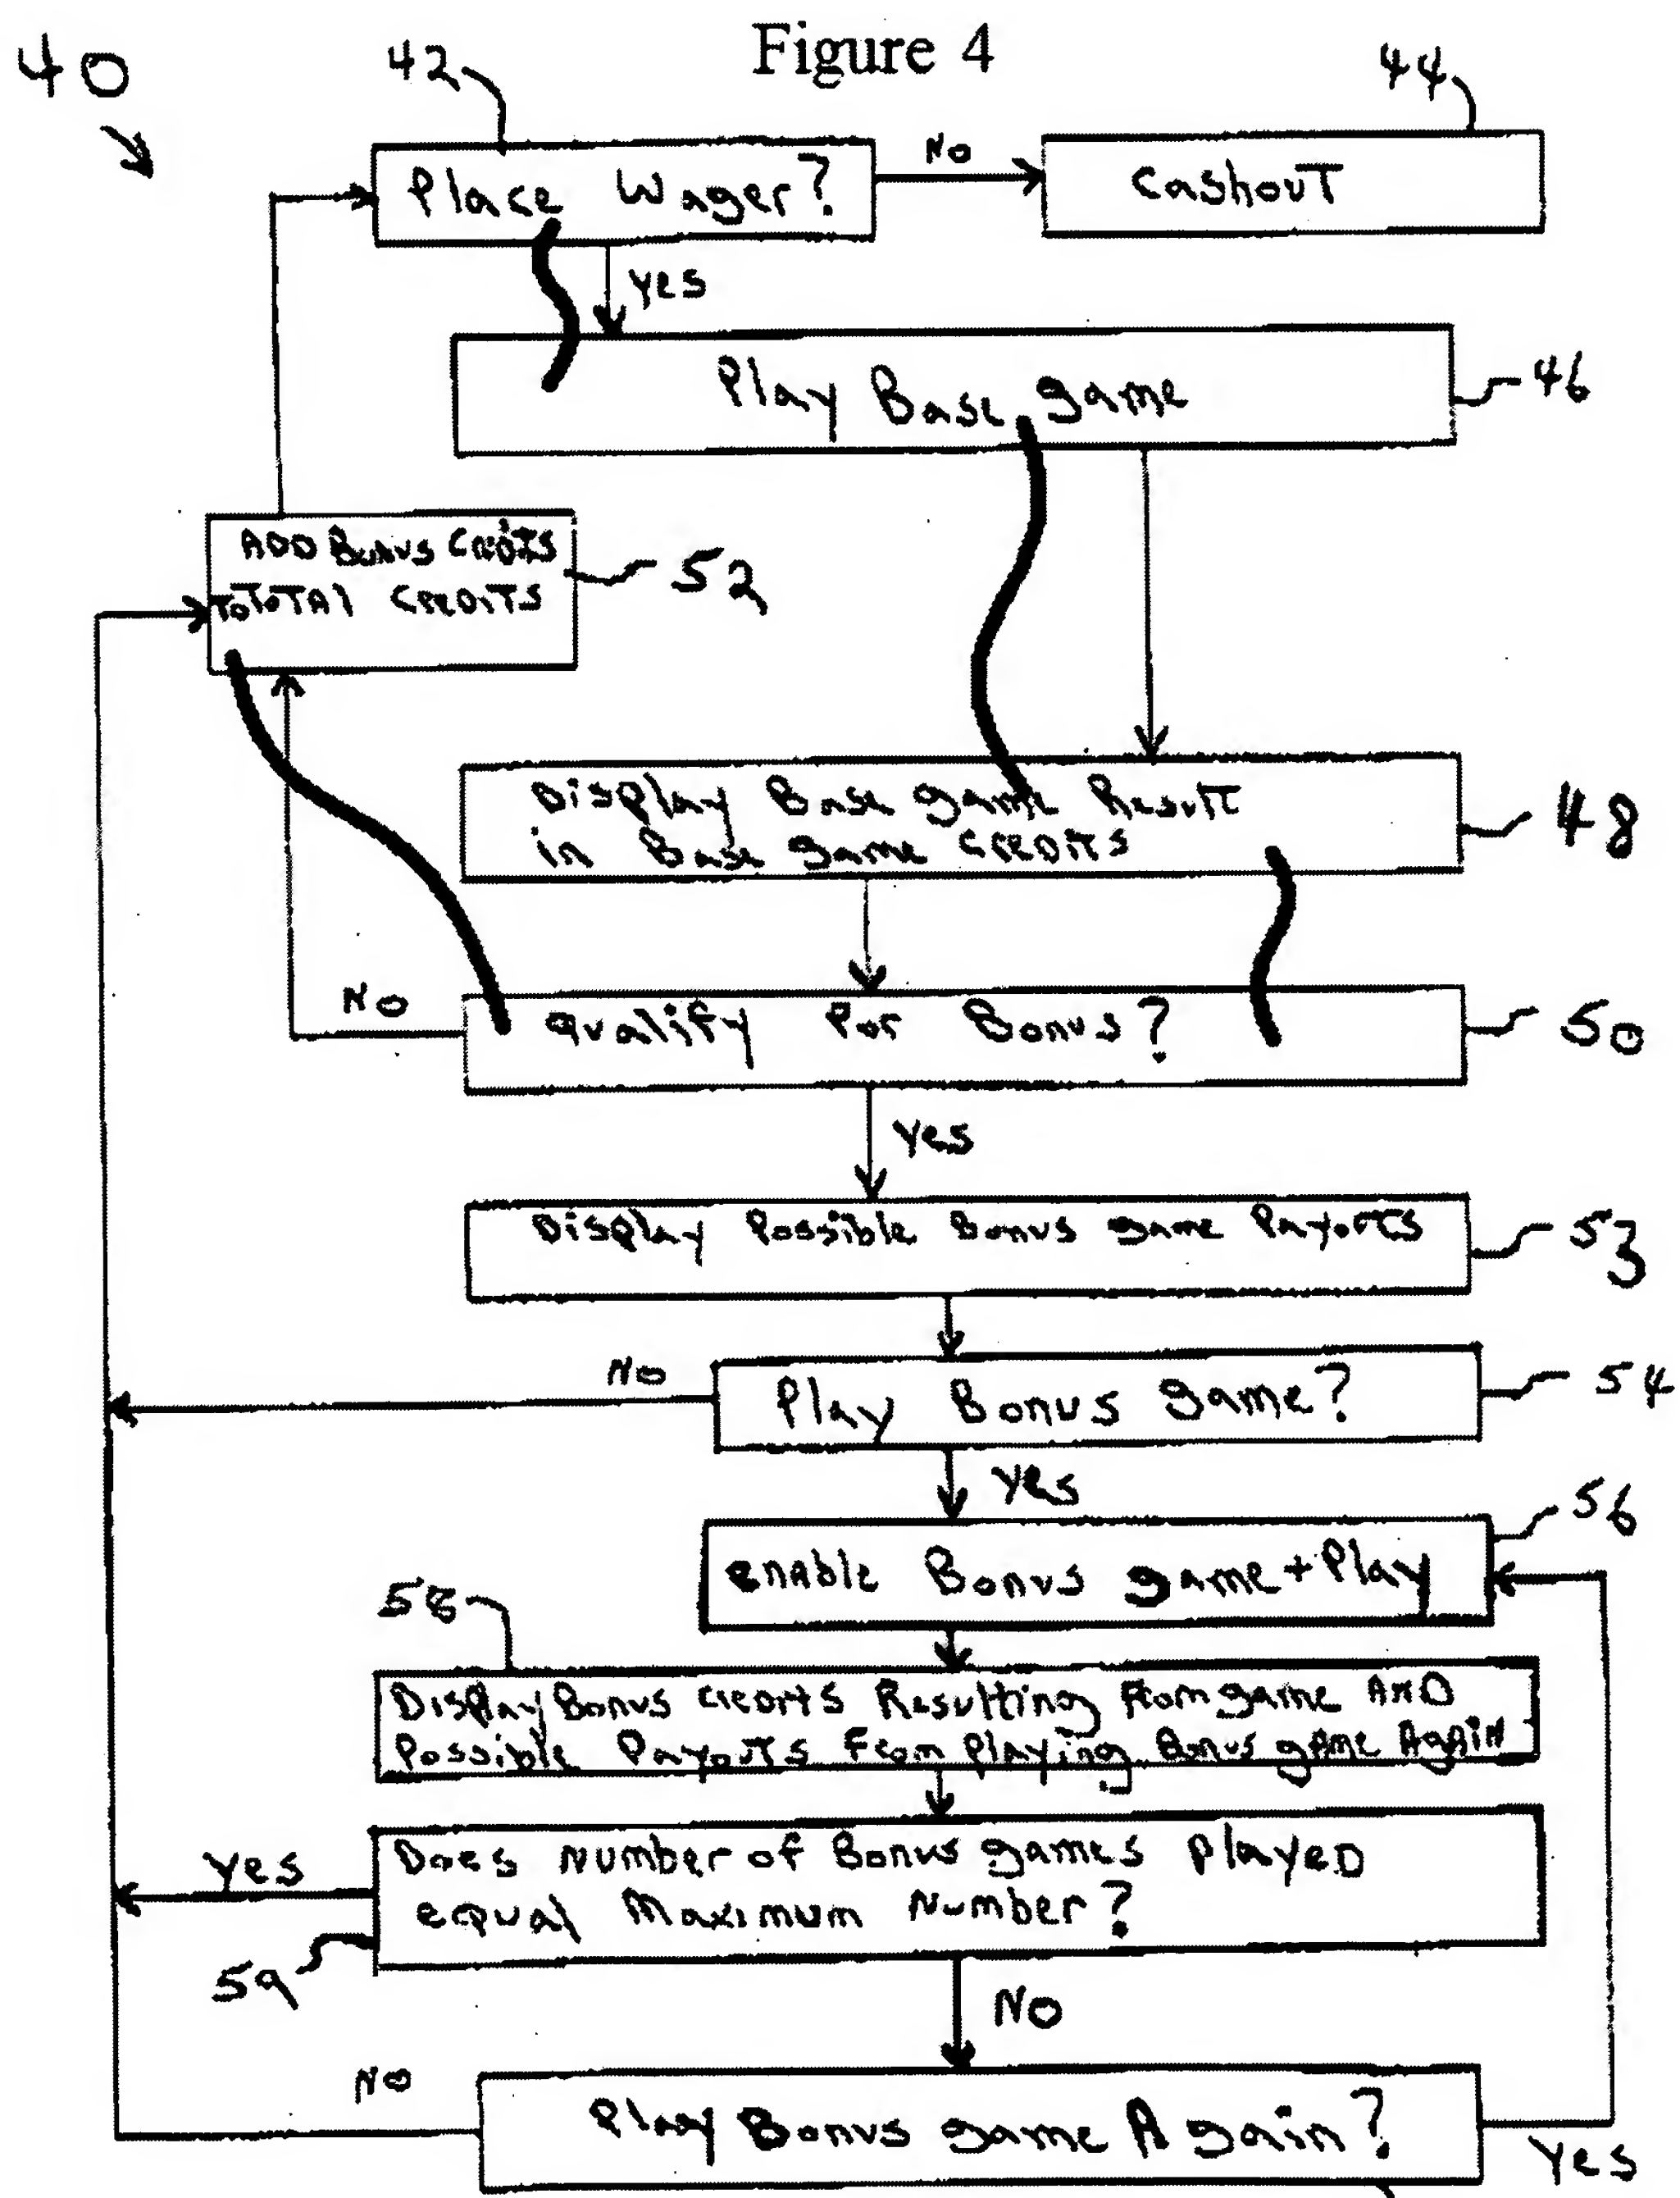 Figure 4
40
42
44
Place Wager?
No
Cashout
Yes
Play Base game
46
ADD Bonus Credits
To TOTAL CREDITS
52
Display Base game Result
in Base game CREDITS
48
No
Qualify For Bonus?
50
Yes
Display Possible Bonus game Payouts
53
No
Play Bonus game?
54
Yes
56
enable Bonus game + Play
58
Display Bonus Credits Resulting From game AND
Possible Payouts From Playing Bonus game Again
Yes
Does Number of Bonus games Played
equal Maximum Number?
59
No
No
Play Bonus game Again?
Yes